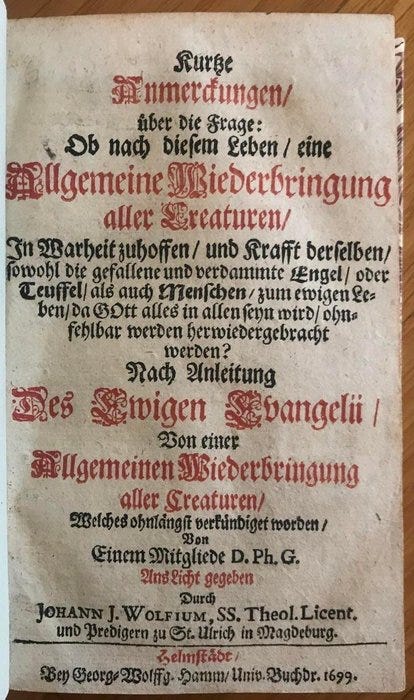 Kurtze
Anmerckungen/
über die Frage:
Ob nach diesem Leben / eine
Allgemeine Wiederbringung
aller Creaturen/
In Warheit zuhoffen/ und Krafft derselben/
sowohl die gefallene und verdammte Engel/ oder
Teuffel/ als auch Menschen/ zum ewigen Le-
ben/ da GOtt alles in allen seyn wird/ ohn-
fehlbar werden herwiedergebracht
werden?
Nach Anleitung
Des Ewigen Evangelii /
Von einer
Allgemeinen Wiederbringung
aller Creaturen/
Welches ohnlängst verkündiget worden/
Von
Einem Mitgliede D. Ph. G.
Ans Licht gegeben
Durch
JOHANN J. WOLFIUM, SS. Theol. Licent.
und Predigern zu St. Ulrich in Magdeburg.
Helmstädt/
Bey Georg-Wolffg. Hamm/ Univ. Buchdr. 1699.